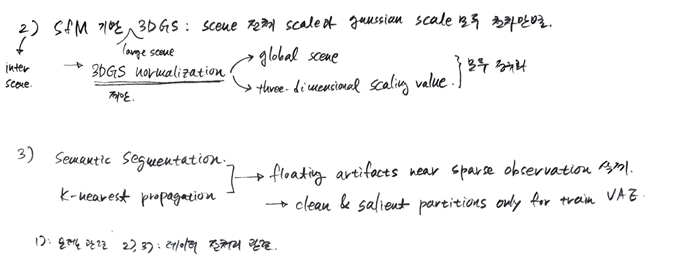 2) SfM 기반 large scene 3DGS : scene 전체 scale과 gaussian scale 모두 천차만별.
inter scene.
→ 3DGS normalization → global scene
제안. → three-dimensional scaling value. } 모두 정규화
3) Semantic Segmentation.
K-nearest propagation → floating artifacts near sparse observation 삭제.
→ clean & salient partitions only for train VAE.
1): 모델 관련 2), 3): 데이터 전처리 관련.